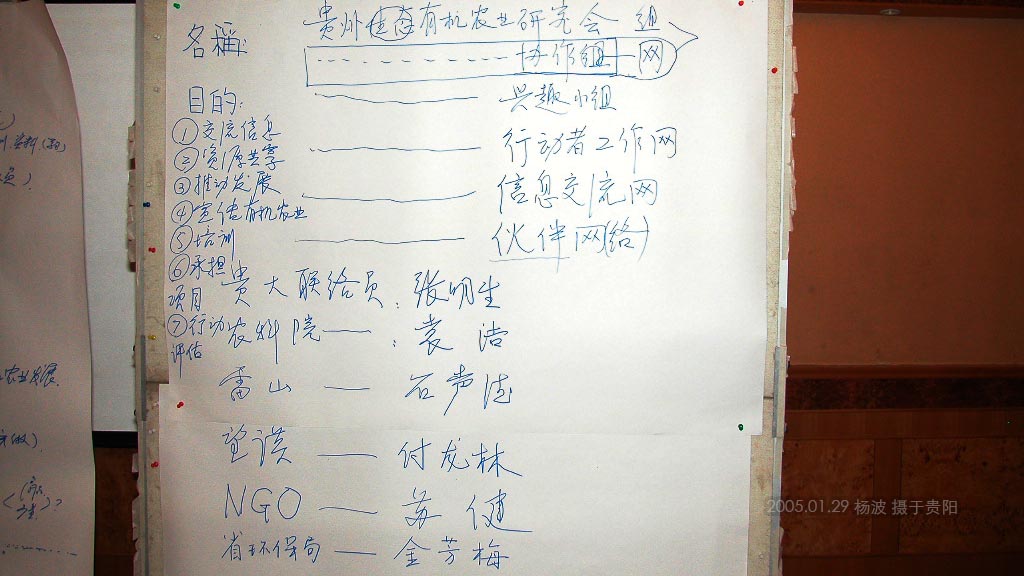 名稱:
贵州生态有机农业研究会 组
协作组 网
目的:
兴趣小组
①交流信息
行动者工作网
②资源共享
③推动发展
信息交流网
④宣传有机农业
⑤培训
伙伴网(络)
⑥承担
项目
贵大联络员:张明生
⑦行动
评估
农科院——:袁洁
雷山——石声浩
望谟——付龙林
NGO——苏健
省环保局——金芳梅
农业发展
2005.01.29 杨波 摄于贵阳